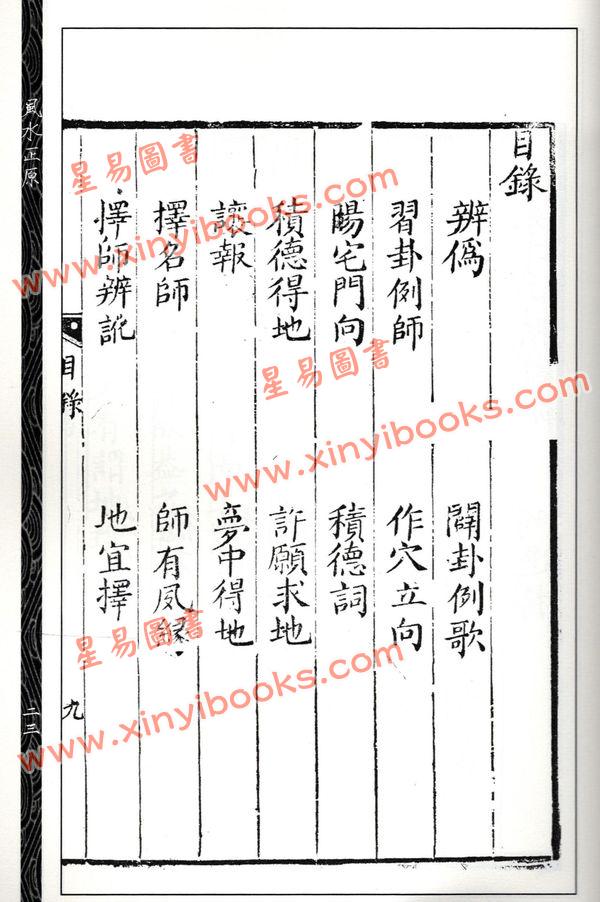 目錄
辨僞
闢卦例歌
習卦例師
作穴立向
陽宅門向
積德詞
積德得地
許願求地
讓報
夢中得地
擇名師
師有夙緣
擇師辨訛
地宜擇
目錄
九
風水正原
二三
星易圖書
www.xinyibooks.com
星易圖書
www.xinyibooks.com
星易圖書
www.xinyibooks.com